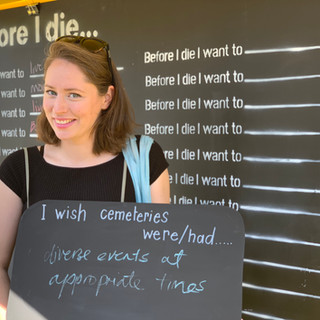 ore I die...
want to
want to
want to
want to
want to
Before I die I want to
Before I die I want to
Before I die I want to
Before I die I want to
Before I die I want to
Before I die I want to
Before I die I want to
I wish cemeteries
were/had.....
diverse events at
appropriate times